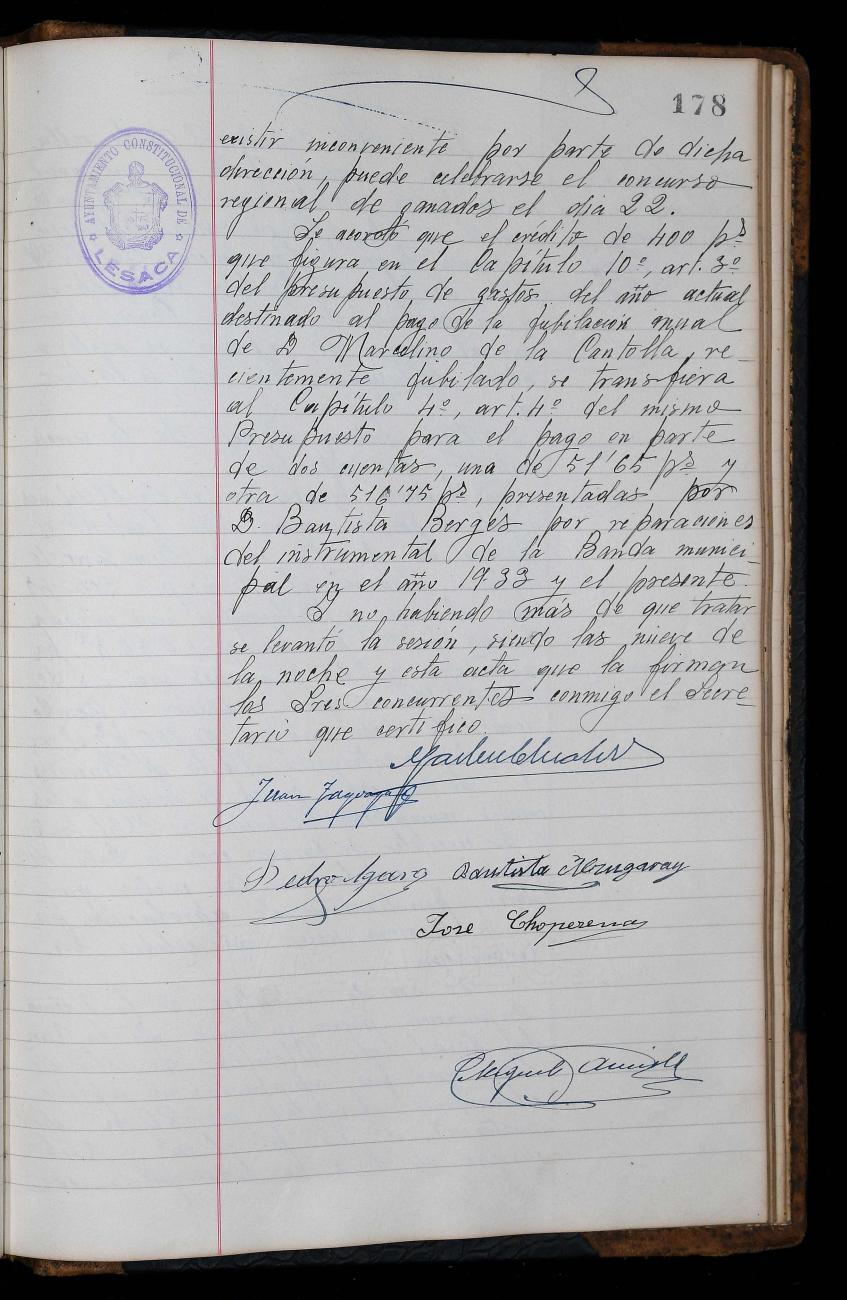 178
AYUNTAMIENTO CONSTITUCIONAL DE
LESACA
existir inconveniente por parte de dicha
dirección, puede celebrarse el concurso
regional de ganados el dia 22.
Se acordó que el crédito de 400 pts
que figura en el Capítulo 10º, art. 3º
del presupuesto de gastos del año actual
destinado al pago de la jubilación anual
de D Marcelino de la Cantolla, re-
cientemente jubilado, se transfiera
al Capítulo 4º, art. 4º del mismo
Presupuesto para el pago en parte
de dos cuentas, una de 51'65 pts y
otra de 516'75 pts, presentadas por
D. Bautista Bergés por reparaciones
del instrumental de la Banda munici-
pal en el año 1933 y el presente.
Y no habiendo más de que tratar
se levantó la sesión, siendo las nueve de
la noche y esta acta que la firman
los Sres concurrentes conmigo el Secre-
tario que certifico.
Juan
Pedro Bautista
Jose Choperena
Miguel